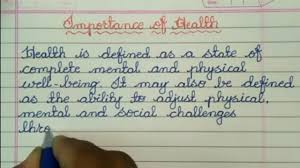 Importance of Health
Health is defined as a state of
complete mental and physical
well-being. It may also be defined
as the ability to adjust physical,
mental and social challenges
thro